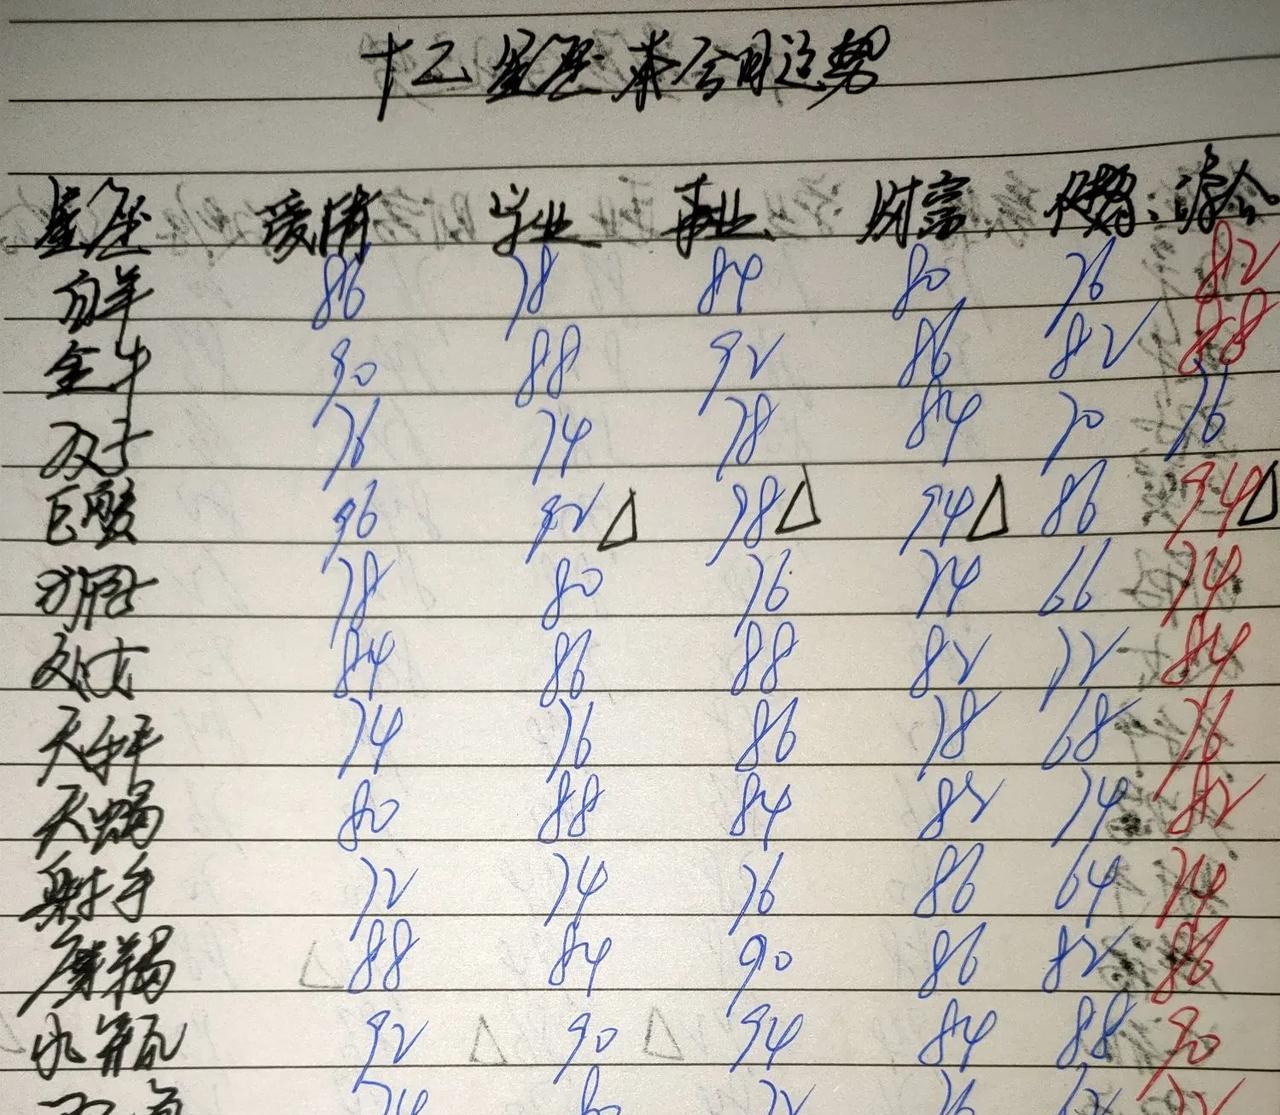 十二星座本命日运势
星座 爱情 学业 事业 财富 健康 综合
白羊 86 78 84 80 76 82
金牛 90 88 92 86 82 88
双子 76 74 78 84 70 76
巨蟹 96 92 △ 98 △ 94 △ 86 94 △
狮子 78 80 76 74 66 74
处女 84 86 88 82 72 84
天秤 74 76 86 78 68 76
天蝎 80 88 84 82 74 82
射手 72 74 76 86 64 74
摩羯 88 84 90 86 82 86
水瓶 92 90 94 84 88 90